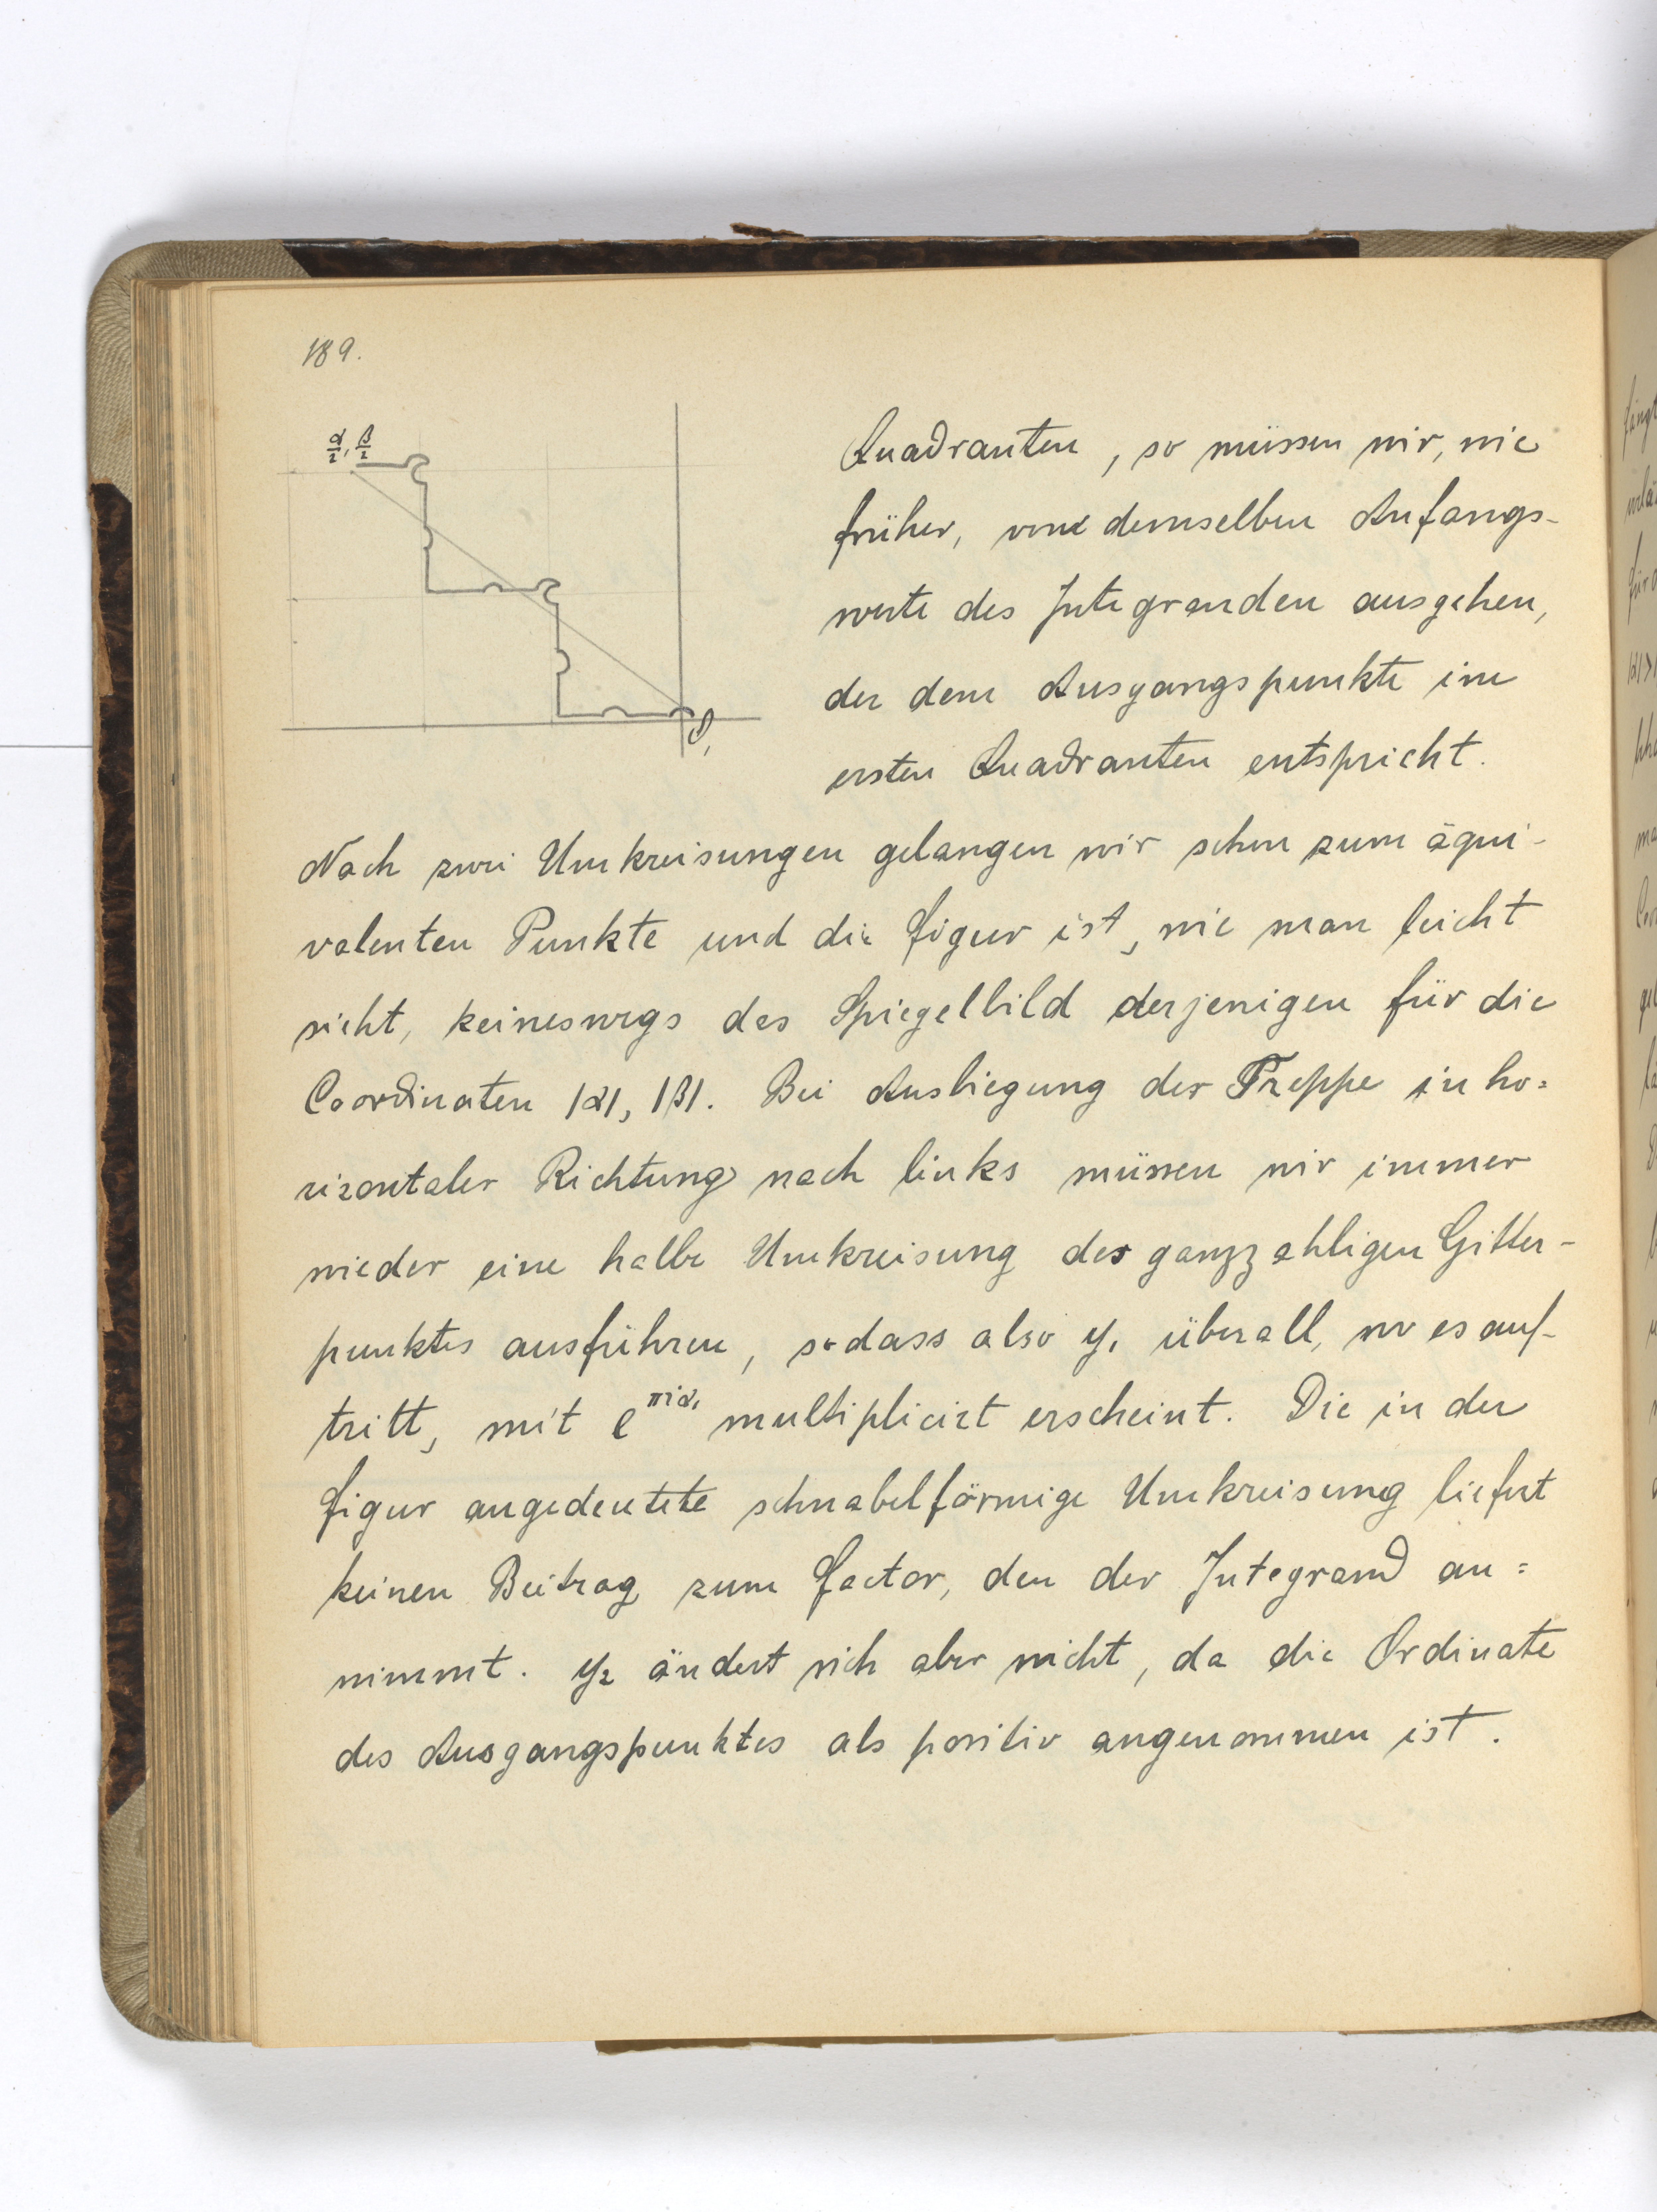 189.
α/2, β/2
0,
Quadranten, so müssen wir, wie
früher, von demselben Anfangs-
werte des Integranden ausgehen,
der dem Ausgangspunkte im
ersten Quadranten entspricht.
Nach zwei Umkreisungen gelangen wir schon zum äqui-
valenten Punkte und die Figur ist, wie man leicht
sieht, keineswegs das Spiegelbild derjenigen für die
Coordinaten |α|, |β|. Bei Ausbiegung der Treppe in ho=
rizontaler Richtung nach links müssen wir immer
wieder eine halbe Umkreisung des ganzzahligen Gitter-
punktes ausführen, sodass also y₁ überall, wo es auf-
tritt, mit e^{πiα₁} multiplicirt erscheint. Die in der
Figur angedeutete schnabelförmige Umkreisung liefert
keinen Beitrag zum Factor, den der Integrand an=
nimmt. y₂ ändert sich aber nicht, da die Ordinate
des Ausgangspunktes als positiv angenommen ist.